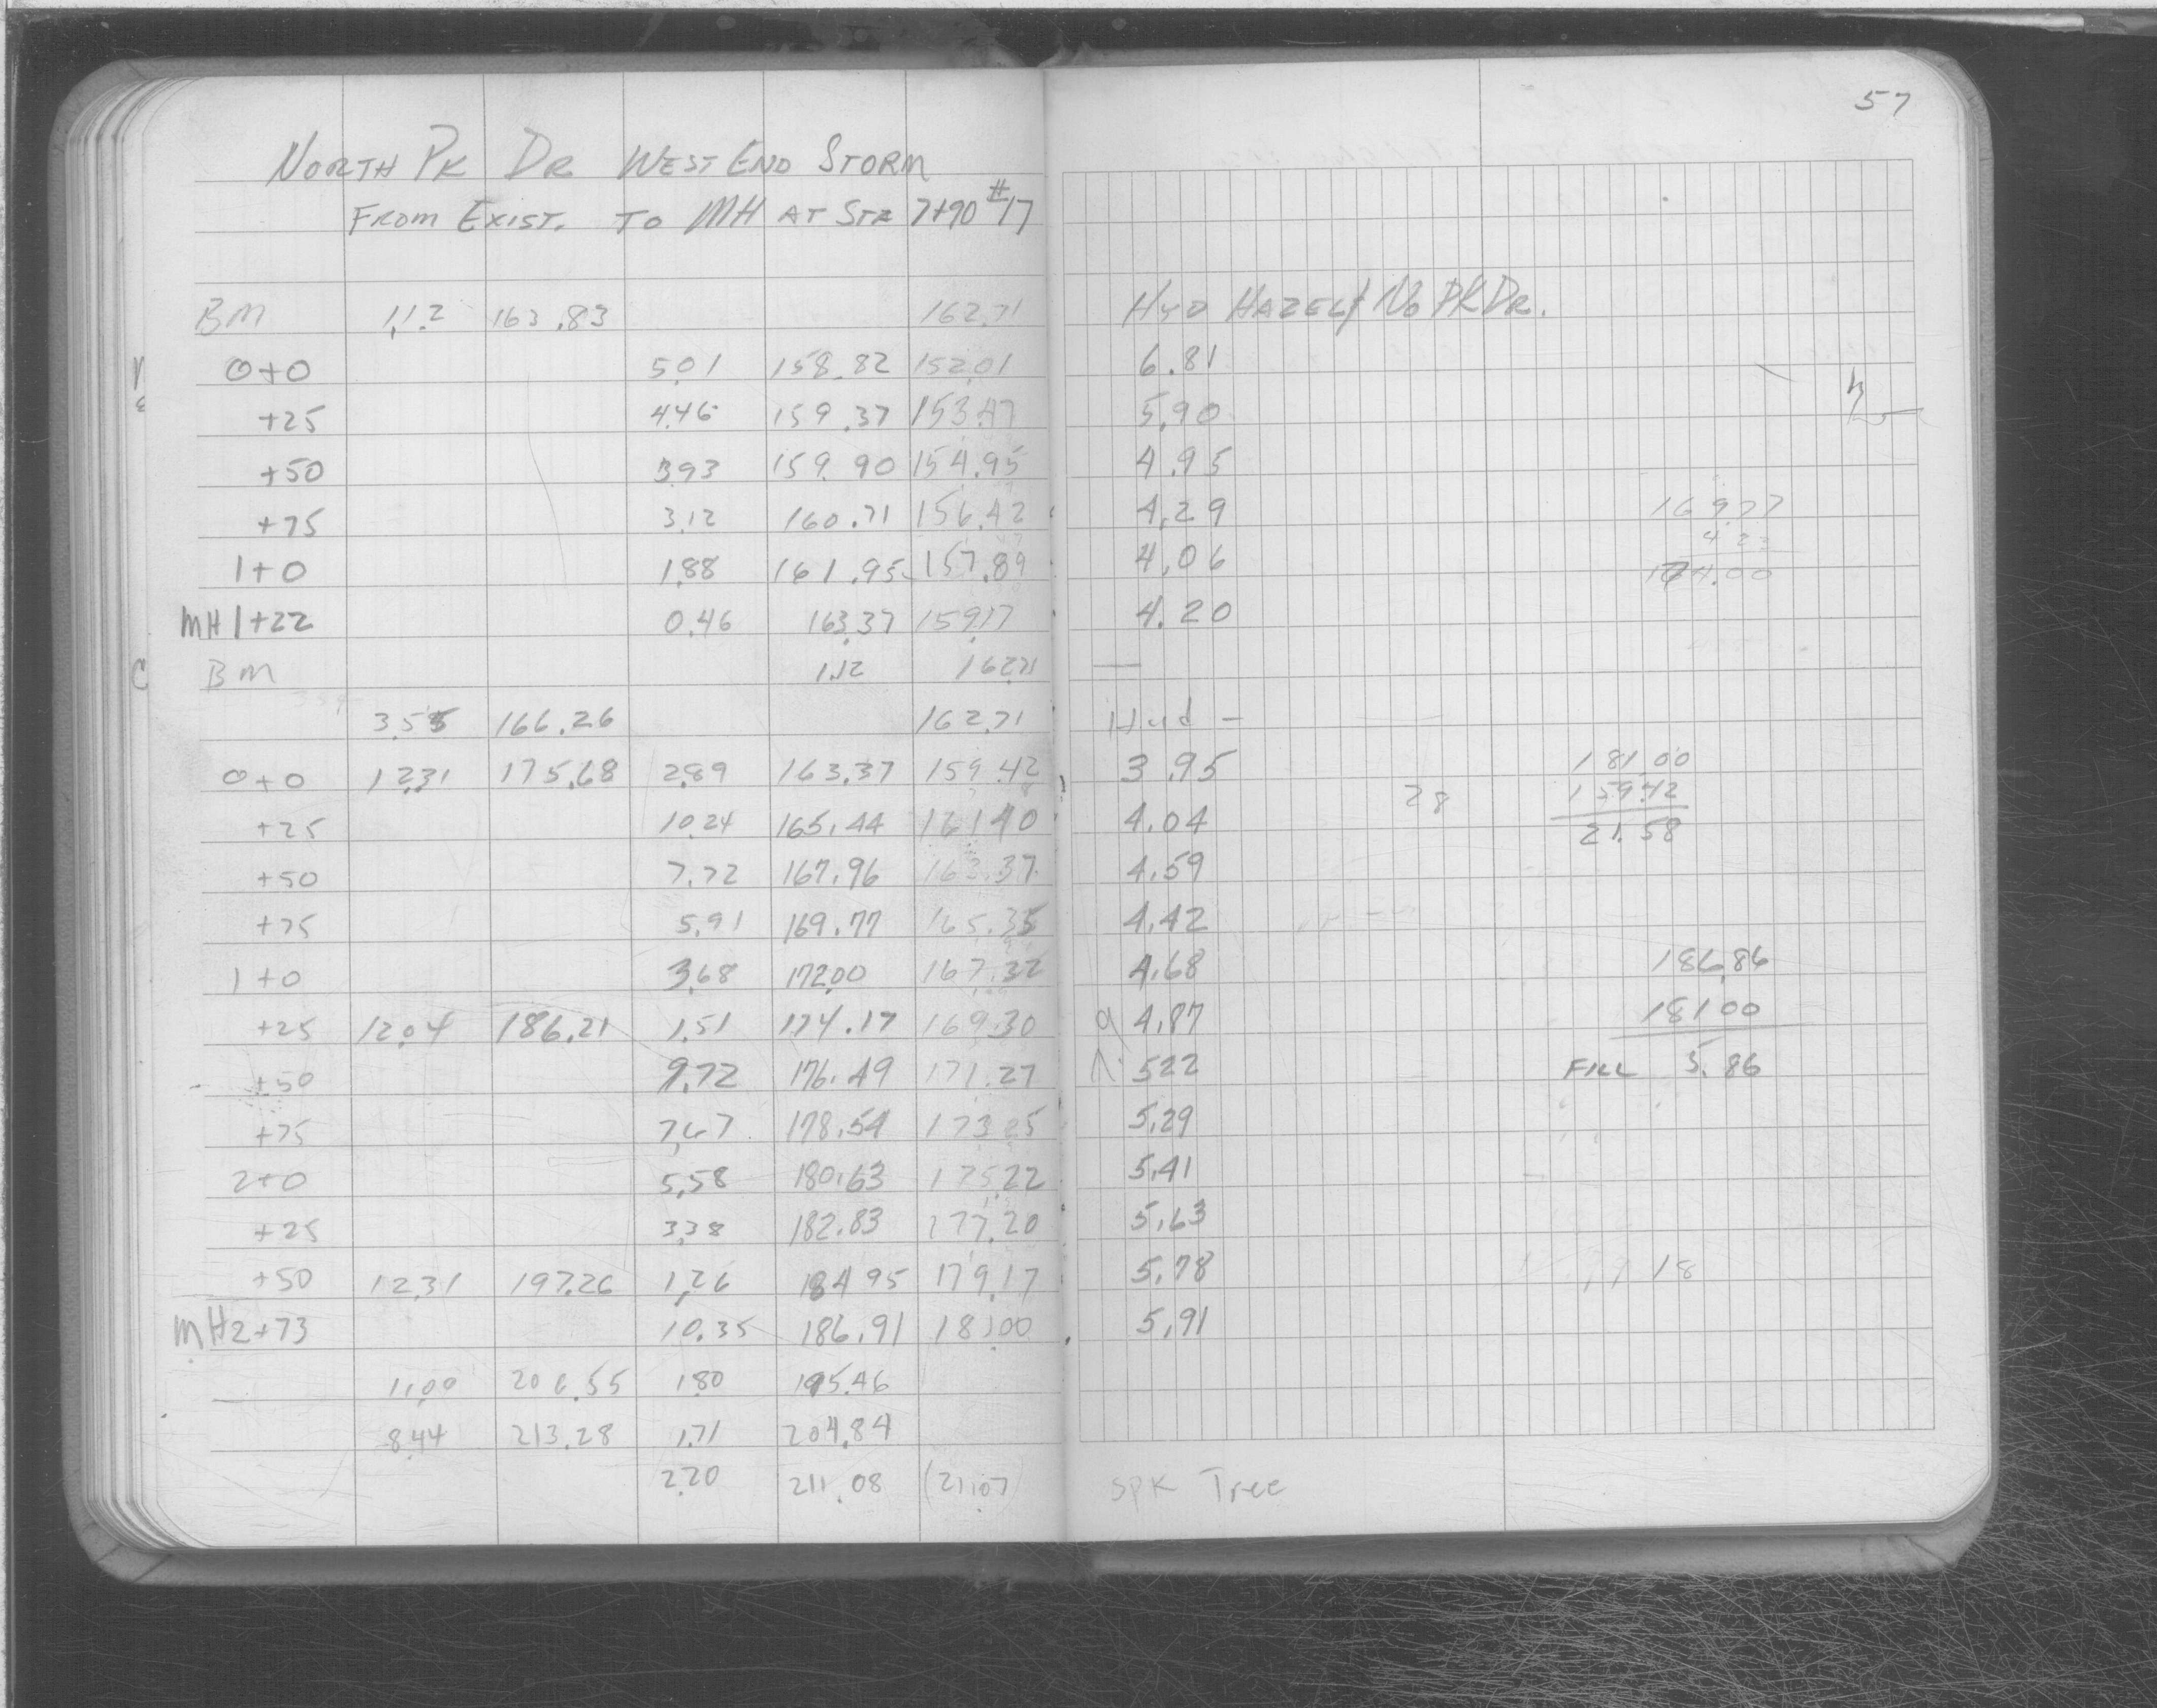 57
NORTH PK DR WEST END STORM
FROM EXIST. TO MH AT STA 7+90 #17
BM 1.12 163.83 162.71 HYD HAZEL / No PK DR.
0+0 5.01 158.82 152.01 6.81
+25 4.46 159.37 153.47 5.90
+50 3.93 159.90 154.95 4.95
+75 3.12 160.71 156.42 4.29
1+0 1.88 161.95 157.89 4.06
MH 1+22 0.46 163.37 159.17 4.20
BM 1.12 162.71 —
3.55 166.26 162.71 Hyd –
0+0 12.31 175.68 2.89 163.37 159.42 3.95
+25 10.24 165.44 161.40 4.04
+50 7.72 167.96 163.37 4.59
+75 5.91 169.77 165.35 4.42
1+0 3.68 172.00 167.32 4.68
+25 12.04 186.21 1.51 174.17 169.30 4.87
+50 9.72 176.49 171.27 5.22
+75 7.67 178.54 173.25 5.29
2+0 5.58 180.63 175.22 5.41
+25 3.38 182.83 177.20 5.63
+50 12.31 197.26 1.26 184.95 179.17 5.78
MH 2+73 10.35 186.91 181.00 5.91
11.09 206.55 1.80 195.46
8.44 213.28 1.71 204.84
2.20 211.08 (211.07) SPK Tree
169.77
174.00
28
181.00
159.42
21.58
186.86
181.00
FILL 5.86
18